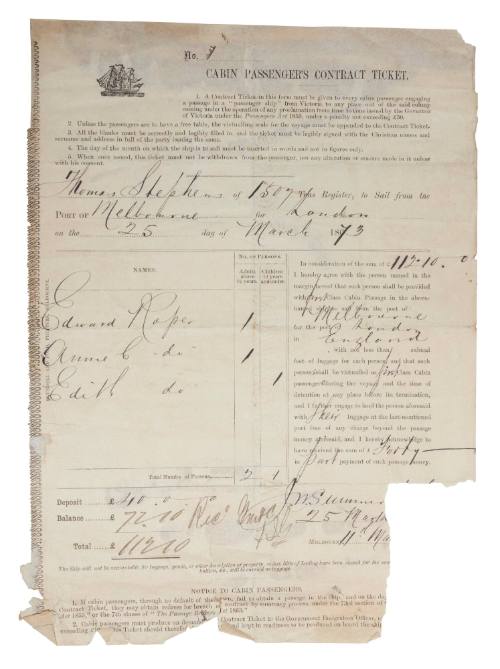 No. 7
CABIN PASSENGER'S CONTRACT TICKET.
1. A Contract Ticket in this form must be given to every cabin passenger engaging
a passage in a "passenger ship" from Victoria to any place out of the said colony
coming under the operation of any proclamation from time to time issued by the Governor
of Victoria under the Passengers Act of 1855, under a penalty not exceeding £50.
2. Unless the passengers are to have a free table, the victualling scale for the voyage must be appended to the Contract Ticket.
3. All the blanks must be correctly and legibly filled in, and the ticket must be legibly signed with the Christian names and
surname and address in full of the party issuing the same.
4. The day of the month on which the ship is to sail must be inserted in words and not in figures only.
5. When once issued, this ticket must not be withdrawn from the passenger, nor any alteration or erasure made in it unless
with his consent.
Thomas Stephens of 1507 Tons Register, to Sail from the
PORT OF Melbourne for London
on the 25 day of March 1873
NAMES.
NO. OF PERSONS.
Adults above 12 years
Children 12 years
Edward Roper 1
Annie C do 1
Edith do 1
Total Number of Persons 2 1
In consideration of the sum of £112-10.0
I hereby agree with the person named in the
margin hereof that such person shall be provided
with first Class Cabin Passage in the above-
from the port of
Melbourne
for the port London
in England
, with not less than cubical
feet of luggage for each person, and that such
person shall be victualled as first Class Cabin
passenger during the voyage and the time of
detention at any place before its termination,
and I further engage to land the person aforesaid
with luggage at the last-mentioned
port free of any charge beyond the passage
money aforesaid, and I hereby acknowledge to
have received the sum of £ Forty
in part payment of such passage money.
Deposit £ 40.0.0
Balance £ 72.10
Total £ 112.10
25
MELBOURNE 11
The Ship will not be accountable for luggage, goods, or other description of property, unless bills of lading have been signed
NOTICE TO CABIN PASSENGERS.
1. If cabin passengers, through no default of their own, fail to obtain a passage in the ship, and on the day
Contract Ticket, they may obtain redress for breach of contract by summary process under the 73rd section of
Act 1855," or the 7th clause of "The Passengers Act 1863."
2. Cabin passengers must produce on demand Contract Ticket to the Government Emigration Officer,